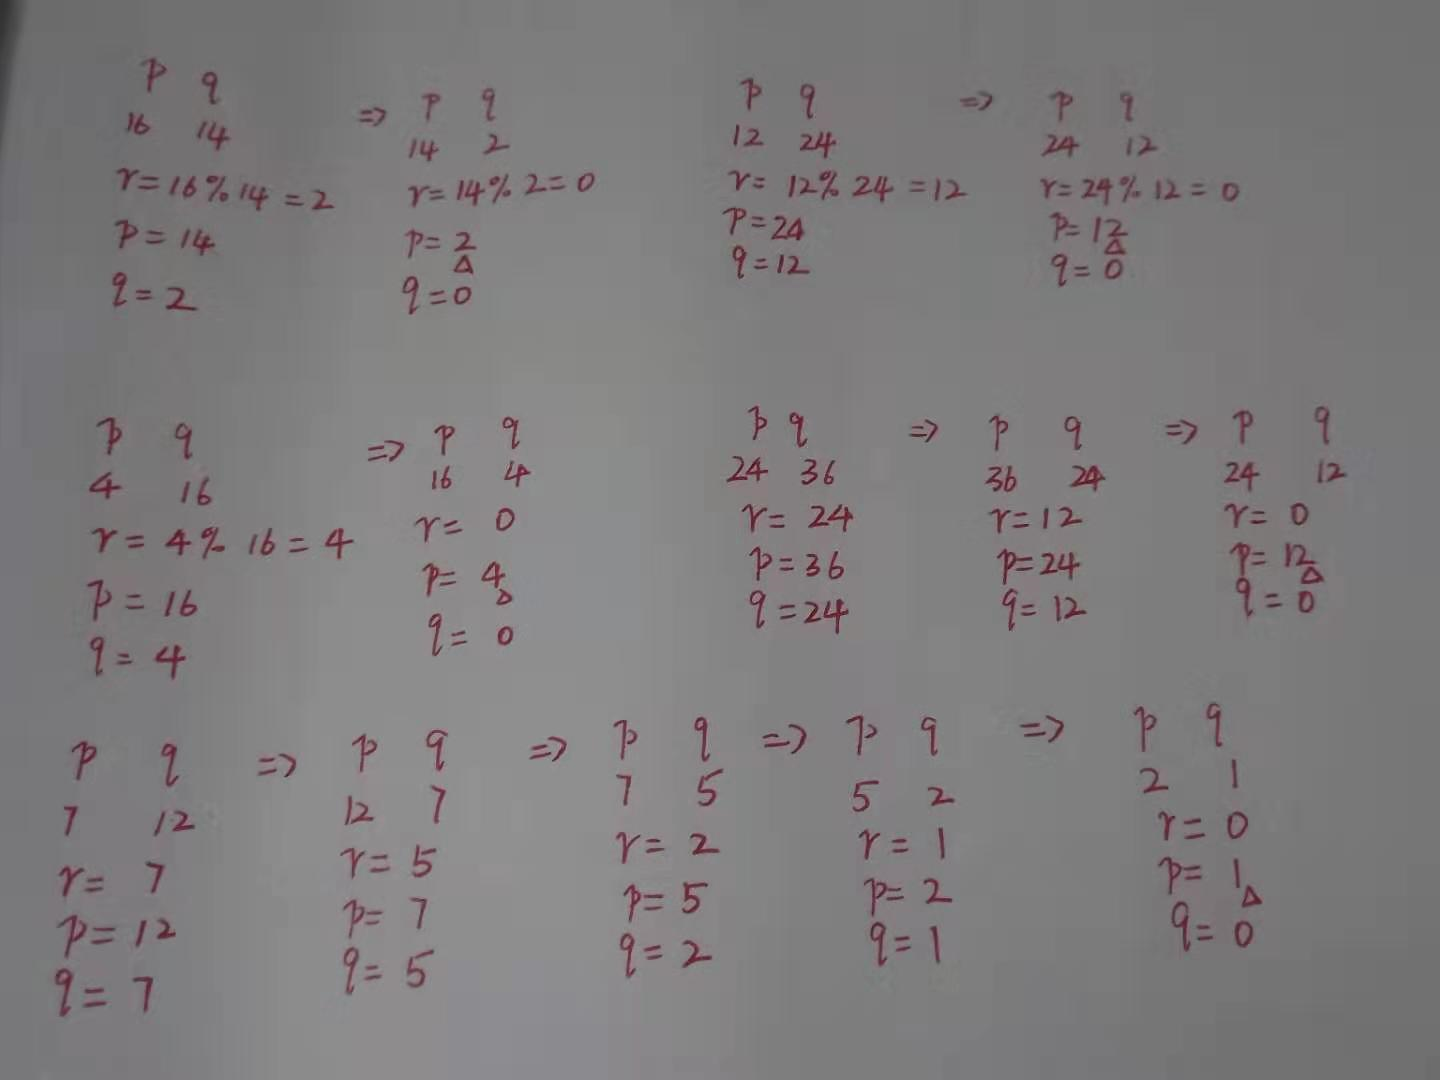 p q
16 14
r=16%14=2
p=14
q=2
=> p q
14 2
r=14%2=0
p=2
△
q=0
p q
12 24
r= 12%24=12
p=24
q=12
=> p q
24 12
r=24%12=0
p=12
△
q=0
p q
4 16
r=4%16=4
p=16
q=4
=> p q
16 4
r= 0
p= 4
△
q= 0
p q
24 36
r= 24
p=36
q=24
=> p q
36 24
r=12
p=24
q=12
=> p q
24 12
r= 0
p= 12
△
q=0
p q
7 12
r= 7
p=12
q= 7
=> p q
12 7
r= 5
p= 7
q= 5
=> p q
7 5
r= 2
p= 5
q= 2
=> p q
5 2
r= 1
p= 2
q= 1
=> p q
2 1
r= 0
p= 1
△
q= 0